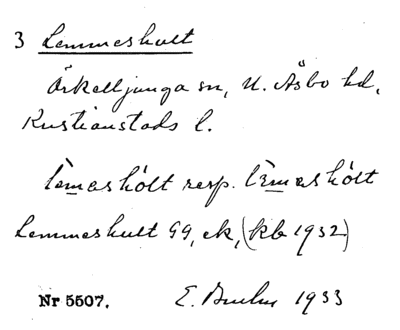 3 Lemmeshult
Örkelljunga sn, N. Åsbo hd,
Kristianstads l.
lèmashólt resp. lèmashólt
Lemmeshult GG, ek, (kb 1932)
Nr 5507. E. Bruhn 1933